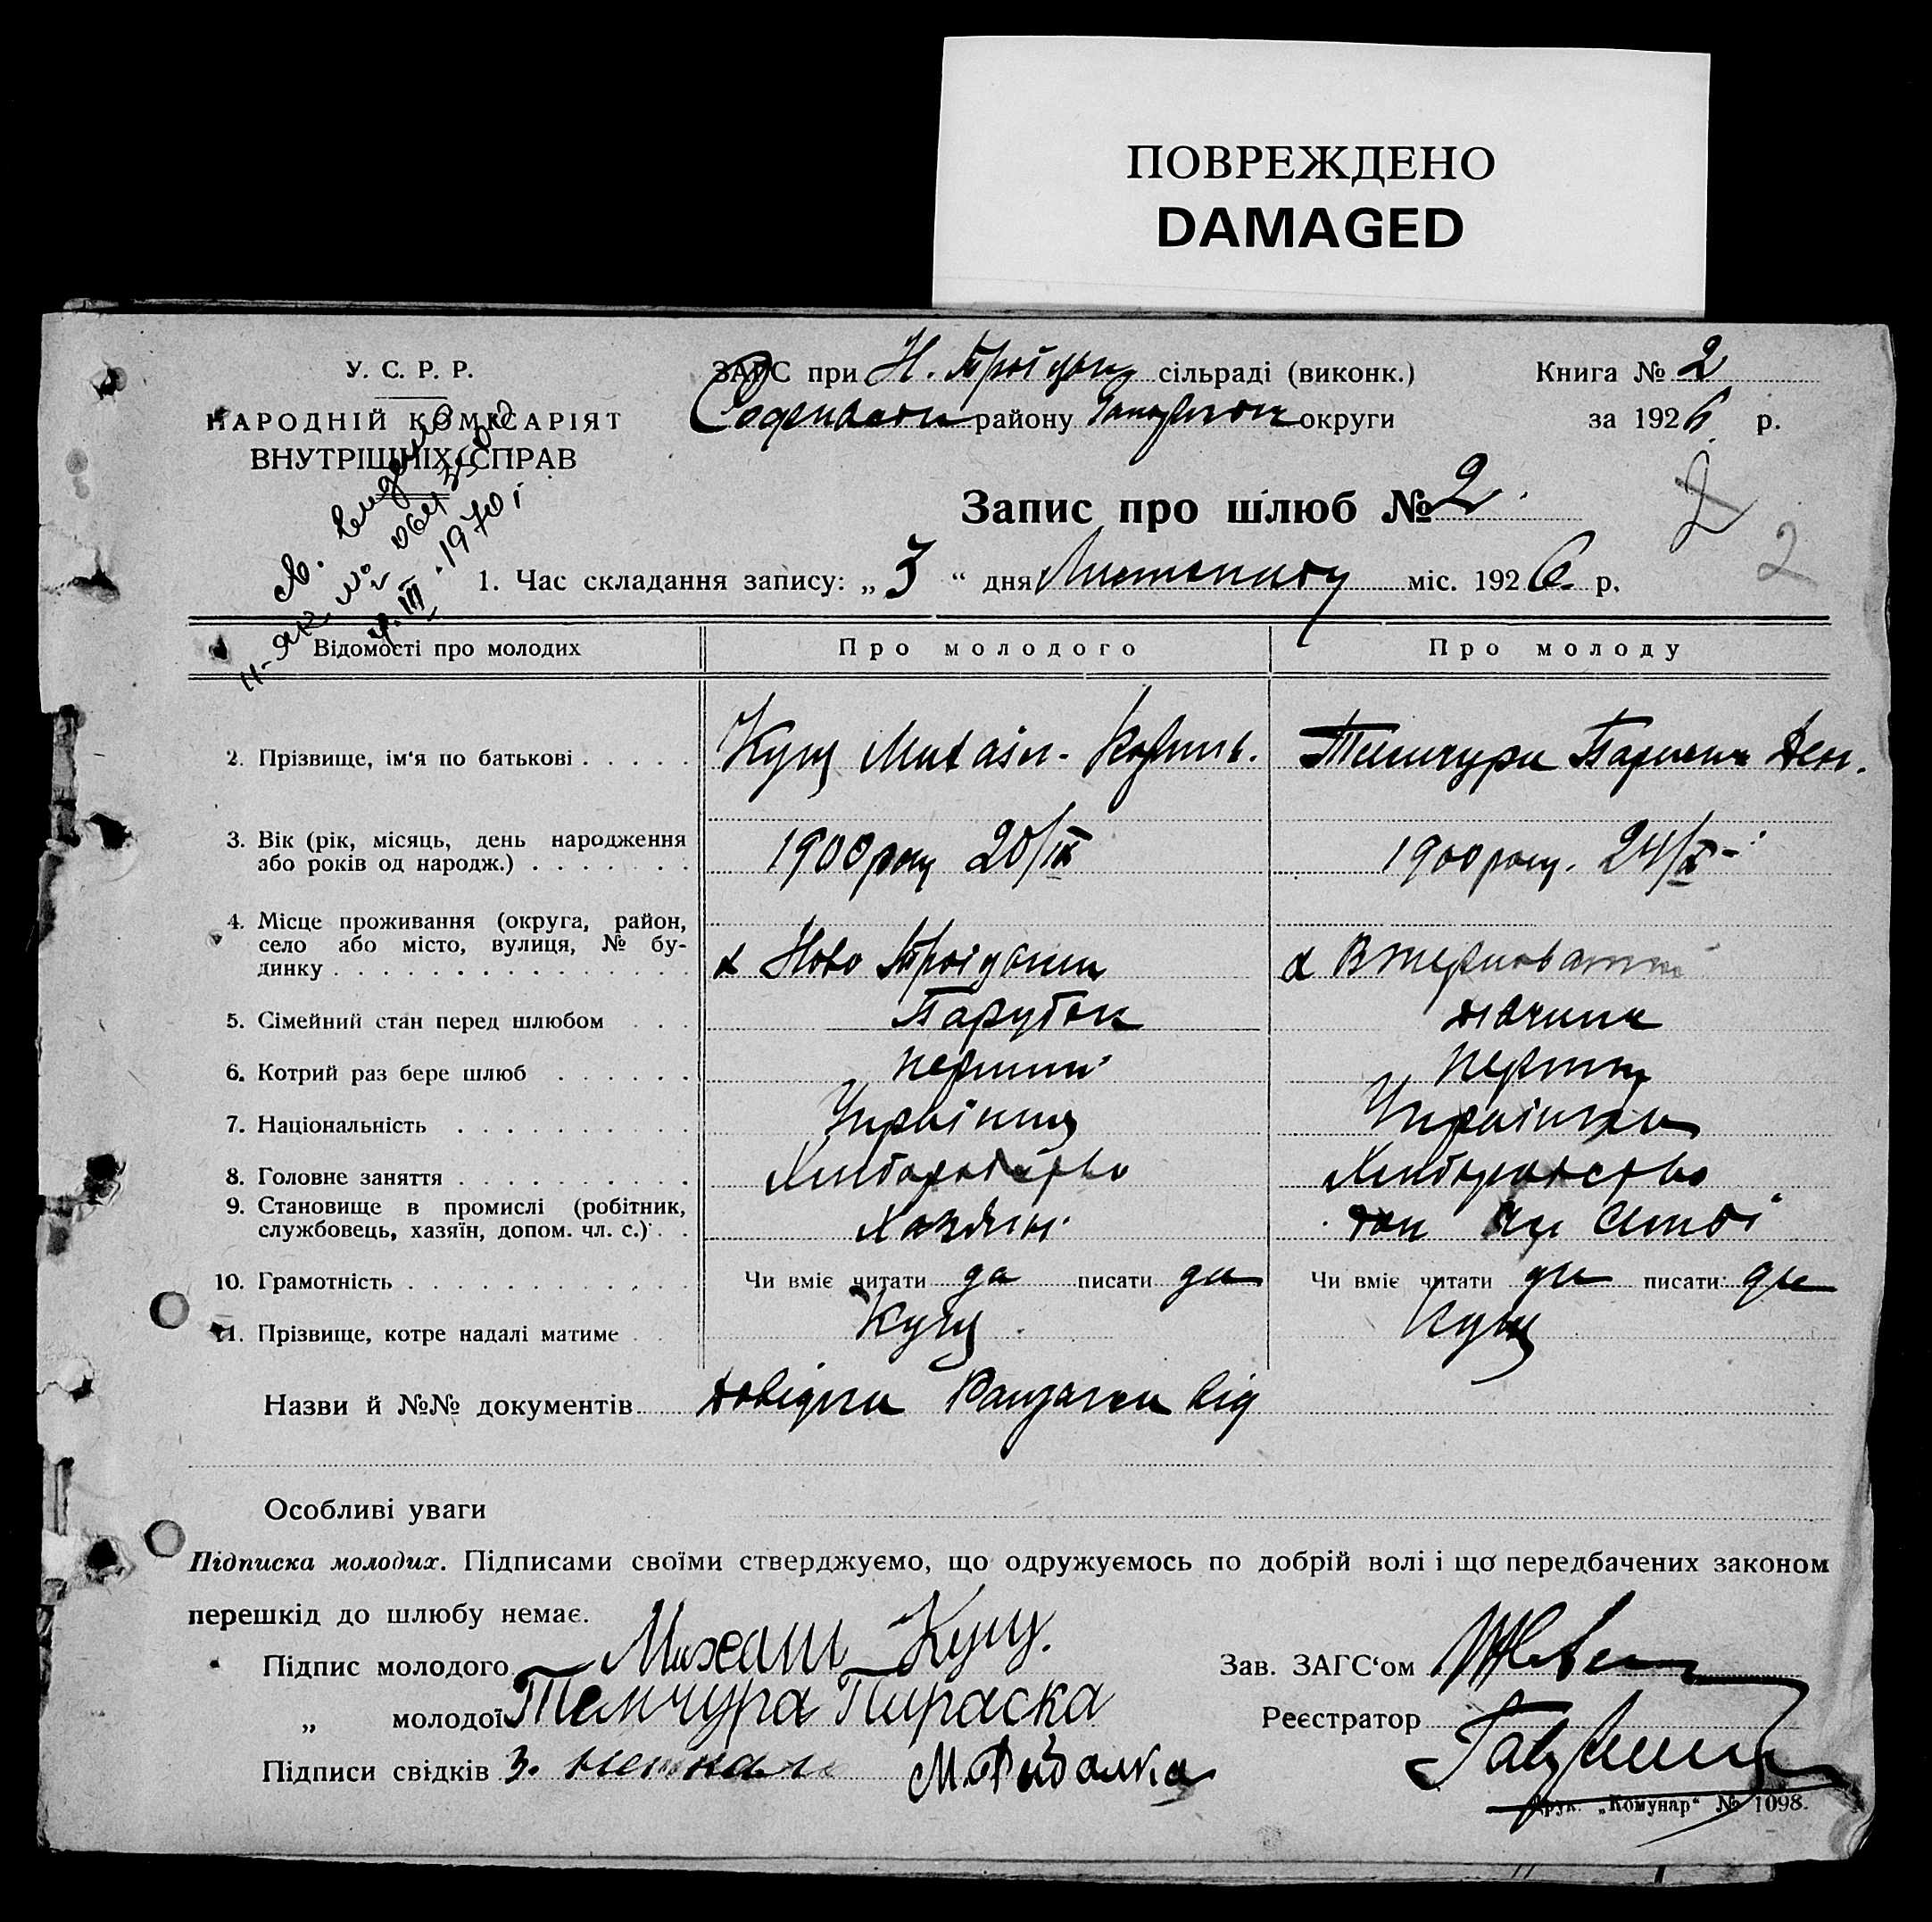 ПОВРЕЖДЕНО
DAMAGED
У. С. Р. Р.
НАРОДНІЙ КОМІСАРІЯТ
ВНУТРІШНІХ СПРАВ
ЗАГС при Н. Троїцькій сільраді (виконк.)
району округи
Книга № 2
за 1926 р.
Запис про шлюб № 2.
2
2
1. Час складання запису: „3“ дня Листопаду міс. 1926. р.
№
III. 1970
Відомості про молодих
Про молодого
Про молоду
2. Прізвище, ім'я по батькові
Кущ Михаіл
Темчура Параска Дем.
3. Вік (рік, місяць, день народження або років од народж.)
1900 року 20/IX
1900 року. 24/X
4. Місце проживання (округа, район, село або місто, вулиця, № будинку
х Ново Троїцьке
х
5. Сімейний стан перед шлюбом
Парубок
дівчина
6. Котрий раз бере шлюб
перший
перший
7. Національність
Українец
Українка
8. Головне заняття
Хлиборобство
Хлиборобство
9. Становище в промислі (робітник, службовець, хазяїн, допом. чл. с.)
Хазяін
10. Грамотність
Чи вміє читати да писати да
Чи вміє читати да писати да
11. Прізвище, котре надалі матиме
Кущ
Кущ
Назви й №№ документів Довідки від
Особливі уваги
Підписка молодих. Підписами своїми стверджуємо, що одружуємось по добрій волі і що передбачених законом
перешкід до шлюбу немає.
Підпис молодого Михаил Кущ.
Зав. ЗАГС'ом
„ молодої Темчура Параска
Реєстратор
Підписи свідків М. Рибалка
Друк. „Комунар“ № 1098.